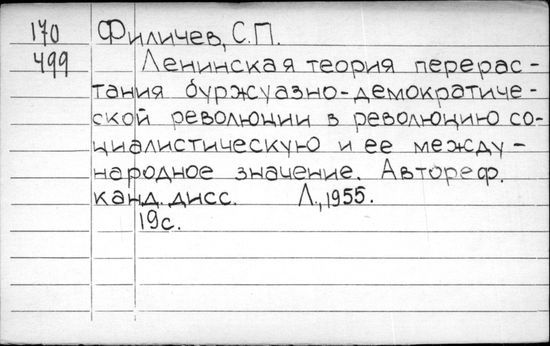 170 Филичев, С.П.
499 Ленинская теория перерас-
тания буржуазно-демократиче-
ской революции в революцию со-
циалистическую и ее между-
народное значение. Автореф.
канд. дисс. Л., 1955.
19с.